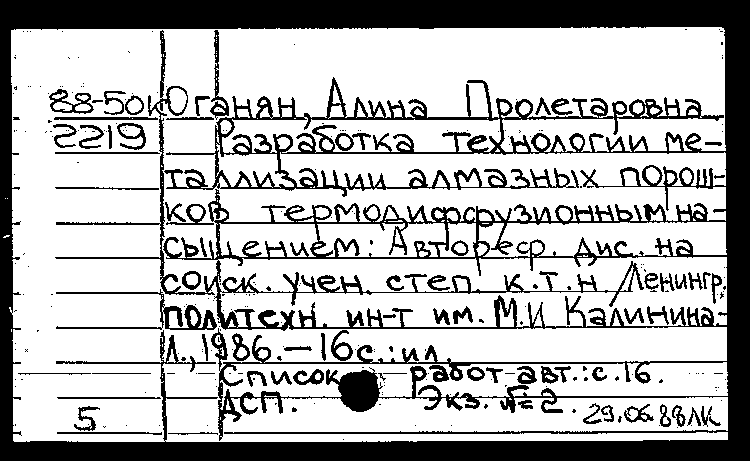 88-50к Оганян, Алина Пролетаровна
2219 Разработка технологии ме-
таллизации алмазных порош-
ков термодиффузионным на-
сыщением: Автореф. дис. на
соиск. учен. степ. к.т.н. / Ленингр.
политехн. ин-т им. М.И Калинина.-
Л., 1986.-16с.:ил.
Список работ авт.:с.16.
ДСП. Экз. №2.
5 29.06.88ЛК